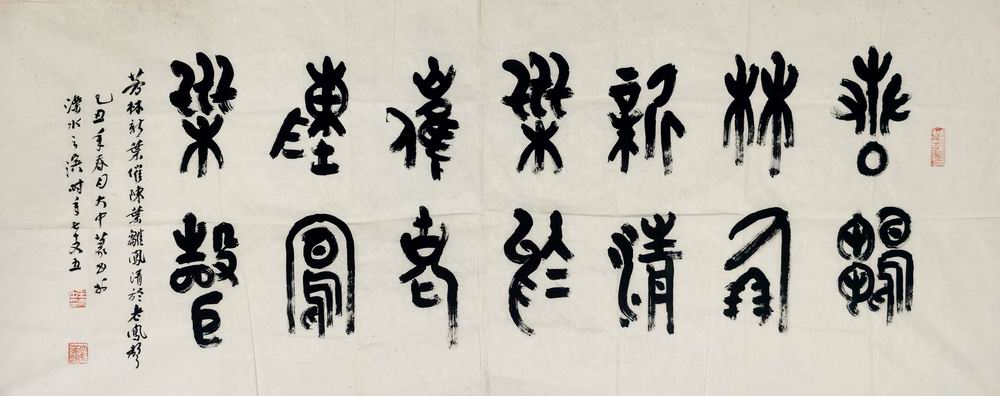 芳林新葉催陳葉
雛鳳清於老鳳聲
芳林新葉催陳葉雛鳳清於老鳳聲
乙丑年春月大中篆書於
濮水之濱時年七十又五